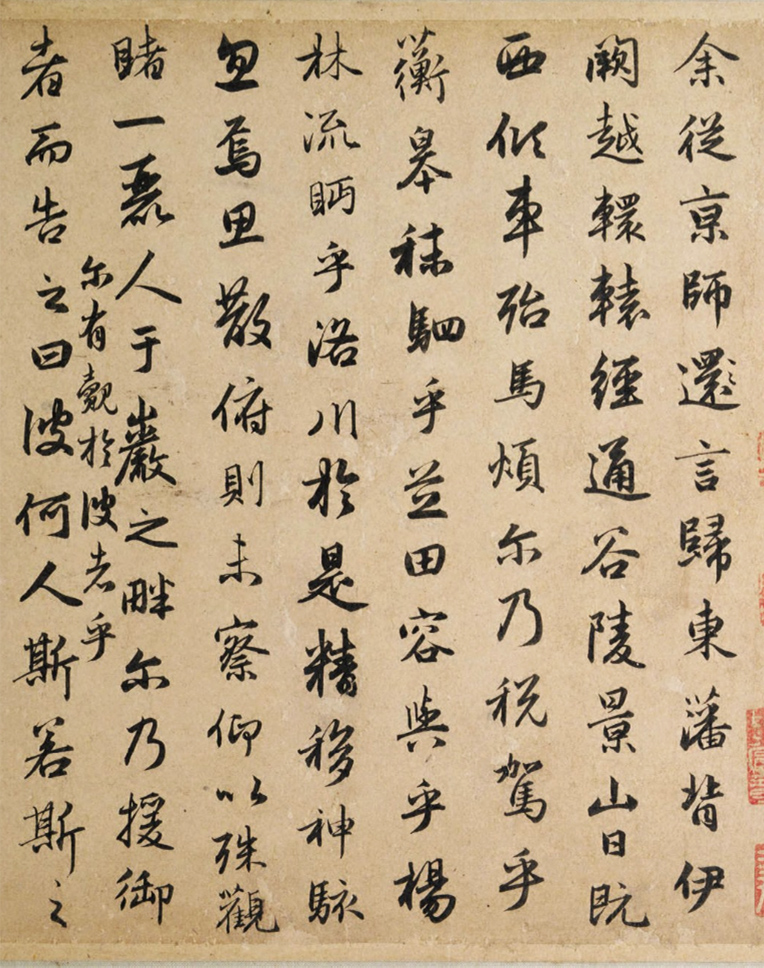 余從京師還言歸東藩背伊
闕越轘轅經通谷陵景山日既
西傾車殆馬煩尔乃税駕乎
蘅皋秣駟乎芝田容與乎楊
林流眄乎洛川於是精移神駭
忽焉思散俯則未察仰以殊觀
睹一麗人于巖之畔尔乃援御
尔有覿於彼者乎
者而告之曰彼何人斯若斯之